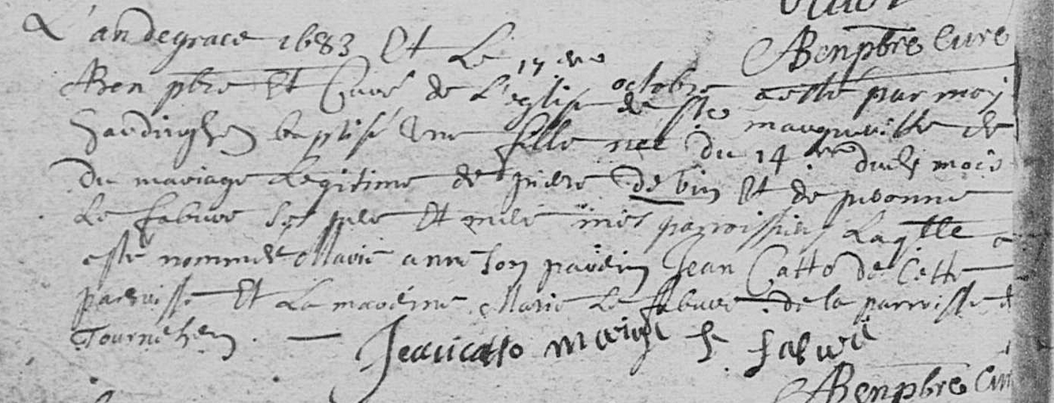 ABenpbre Cure
L'an de grace 1683 Et Le 17eme octobre a esté par moy
ABen pbre Et Curé de L'eglise de Ste margueritte de
hardinghen baptisé une fille née du 14eme dudt mois
du mariage Legitime de piere de bin Et de peronne
Le febure ses pere Et mere mes paroissiens Laqlle a
esté nommée Marie anne son parein Jean Catto de Cette
paroisse Et La mareine Marie Le febure de la paroisse de
Tournehem. —
Jean catto marie le febure
ABenpbre Cure